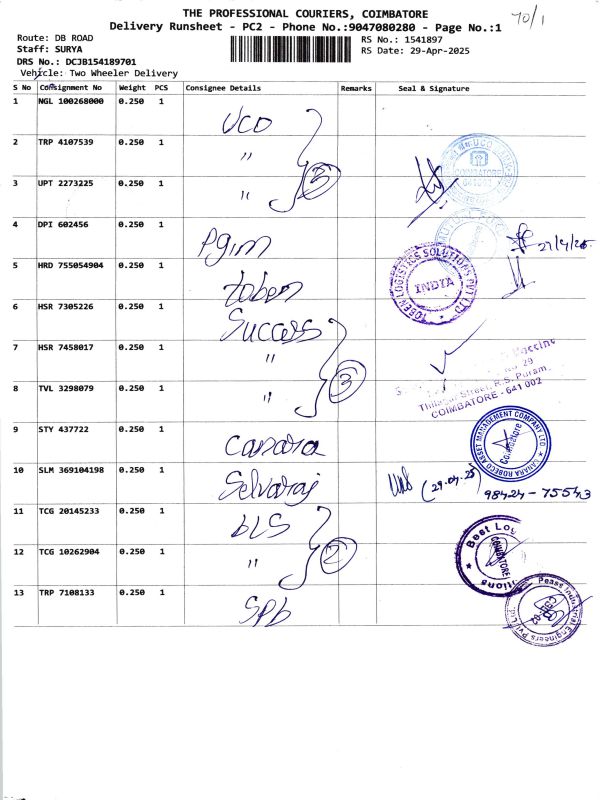 THE PROFESSIONAL COURIERS, COIMBATORE
70/1
Delivery Runsheet - PC2 - Phone No.:9047080280 - Page No.:1
Route: DB ROAD
RS No.: 1541897
Staff: SURYA
RS Date: 29-Apr-2025
DRS No.: DCJB154189701
Vehicle: Two Wheeler Delivery
S No Consignment No Weight PCS Consignee Details Remarks Seal & Signature
1 NGL 100268000 0.250 1 UCO
2 TRP 4107539 0.250 1 "
3 UPT 2273225 0.250 1 " 3
UCO
COIMBATORE
4 DPI 602456 0.250 1 Pgim
5 HRD 755054904 0.250 1 toben
TOBEN LOGISTICS SOLUTIONS PVT LTD
INDIA
6 HSR 7305226 0.250 1 Success
7 HSR 7458017 0.250 1 "
8 TVL 3298079 0.250 1 " 3
Vaccine
29
Street, R.S. Puram,
COIMBATORE - 641 002
9 STY 437722 0.250 1 Canara
CANARA ROBECO ASSET MANAGEMENT COMPANY LTD
Coimbatore
10 SLM 369104198 0.250 1 Selvaraj (29.04.25) 98424-75543
11 TCG 20145233 0.250 1 bLS
12 TCG 10262904 0.250 1 " 2
Best Log
COIMBATORE
13 TRP 7108133 0.250 1 Spb
Peass Industrial Engineers Pvt Ltd.
CBE